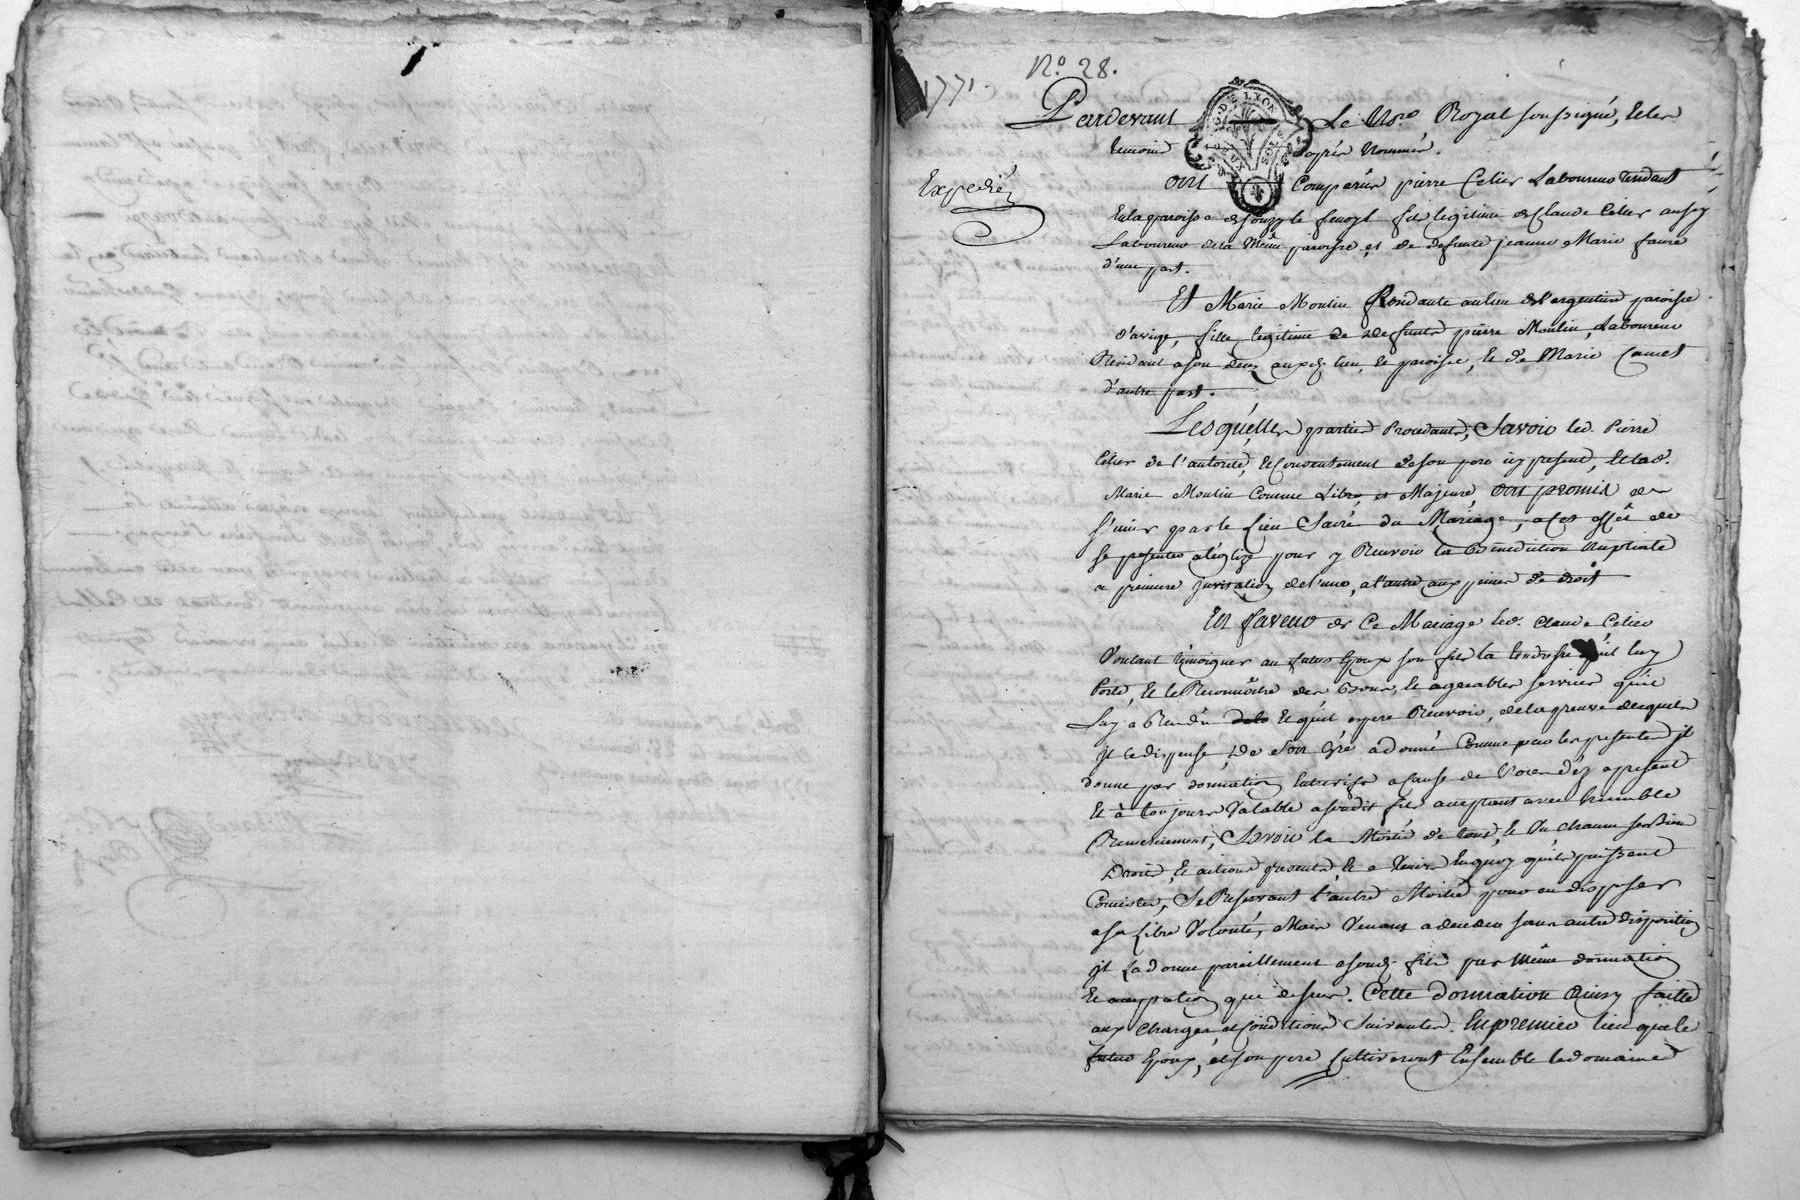 N.º 28.
1771.
Pardevant Le No.re Royal soussigné, et les
temoins apres Nommés.
G. DE LYON
DEUX SOLS
Expedié
ont Comparus pierre Celier Laboureur Residant
En la paroisse de souzy le fils legitime de Claude Celier aussy
Laboureur de la Même paroisse, et de defunte jeanne Marie favre
d'une part.
Et Marie Moulin Residante au lieu de l'argentiere paroisse
d'aveize, fille legitime de defunts pierre Moulin, Laboureur
Residant a son deces auxd. lieu, et paroisse, et de Marie
d'autre part.
Lesquelles parties Procedants, Savoir led. Pierre
Celier de l'autorité, et Consentement de son pere icy present, et lad.
Marie Moulin Comme Libre, et Majeure, ont promis de
s'unir par le Lien Sacré du Mariage, a cet effet de
se presenter a l'eglize pour y Recevoir la Benediction Nuptiale
a premiere de l'une, a l'autre aux peines de droit
En faveur de Ce Mariage led. Claude Celier
Voulant témoigner au futur Epoux son fils la tendresse qu'il luy
Porte, et le Reconnoître des bons, et agreables services qu'il
Luy a Rendu et qu'il espere Recevoir, de la preuve desquels
il le dispense, de son Gré a donné Comme par les presentes il
donne par donnation Entrevifs a Cause de Noces dez a present
et à toujours Valable a sondit fils acceptant avec humble
Remerciement, Savoir la Moitié de tous, et Un chacun ses Biens
Droits, et actions presents, et a Venir En quoy qu'ils puissent
Consister, Se Reservant l'autre Moitié pour en disposer
a sa Libre Volonté, Mais Venant a deceder sans autre disposition
il La donne pareillement a soud. fils par Même donnation
et acceptation que dessus. Cette donnation Ainsy faitte
aux Charges et Conditions Suivantes. En premier lieu que le
futur Epoux, et son pere Cultiveront Ensemble le domaine